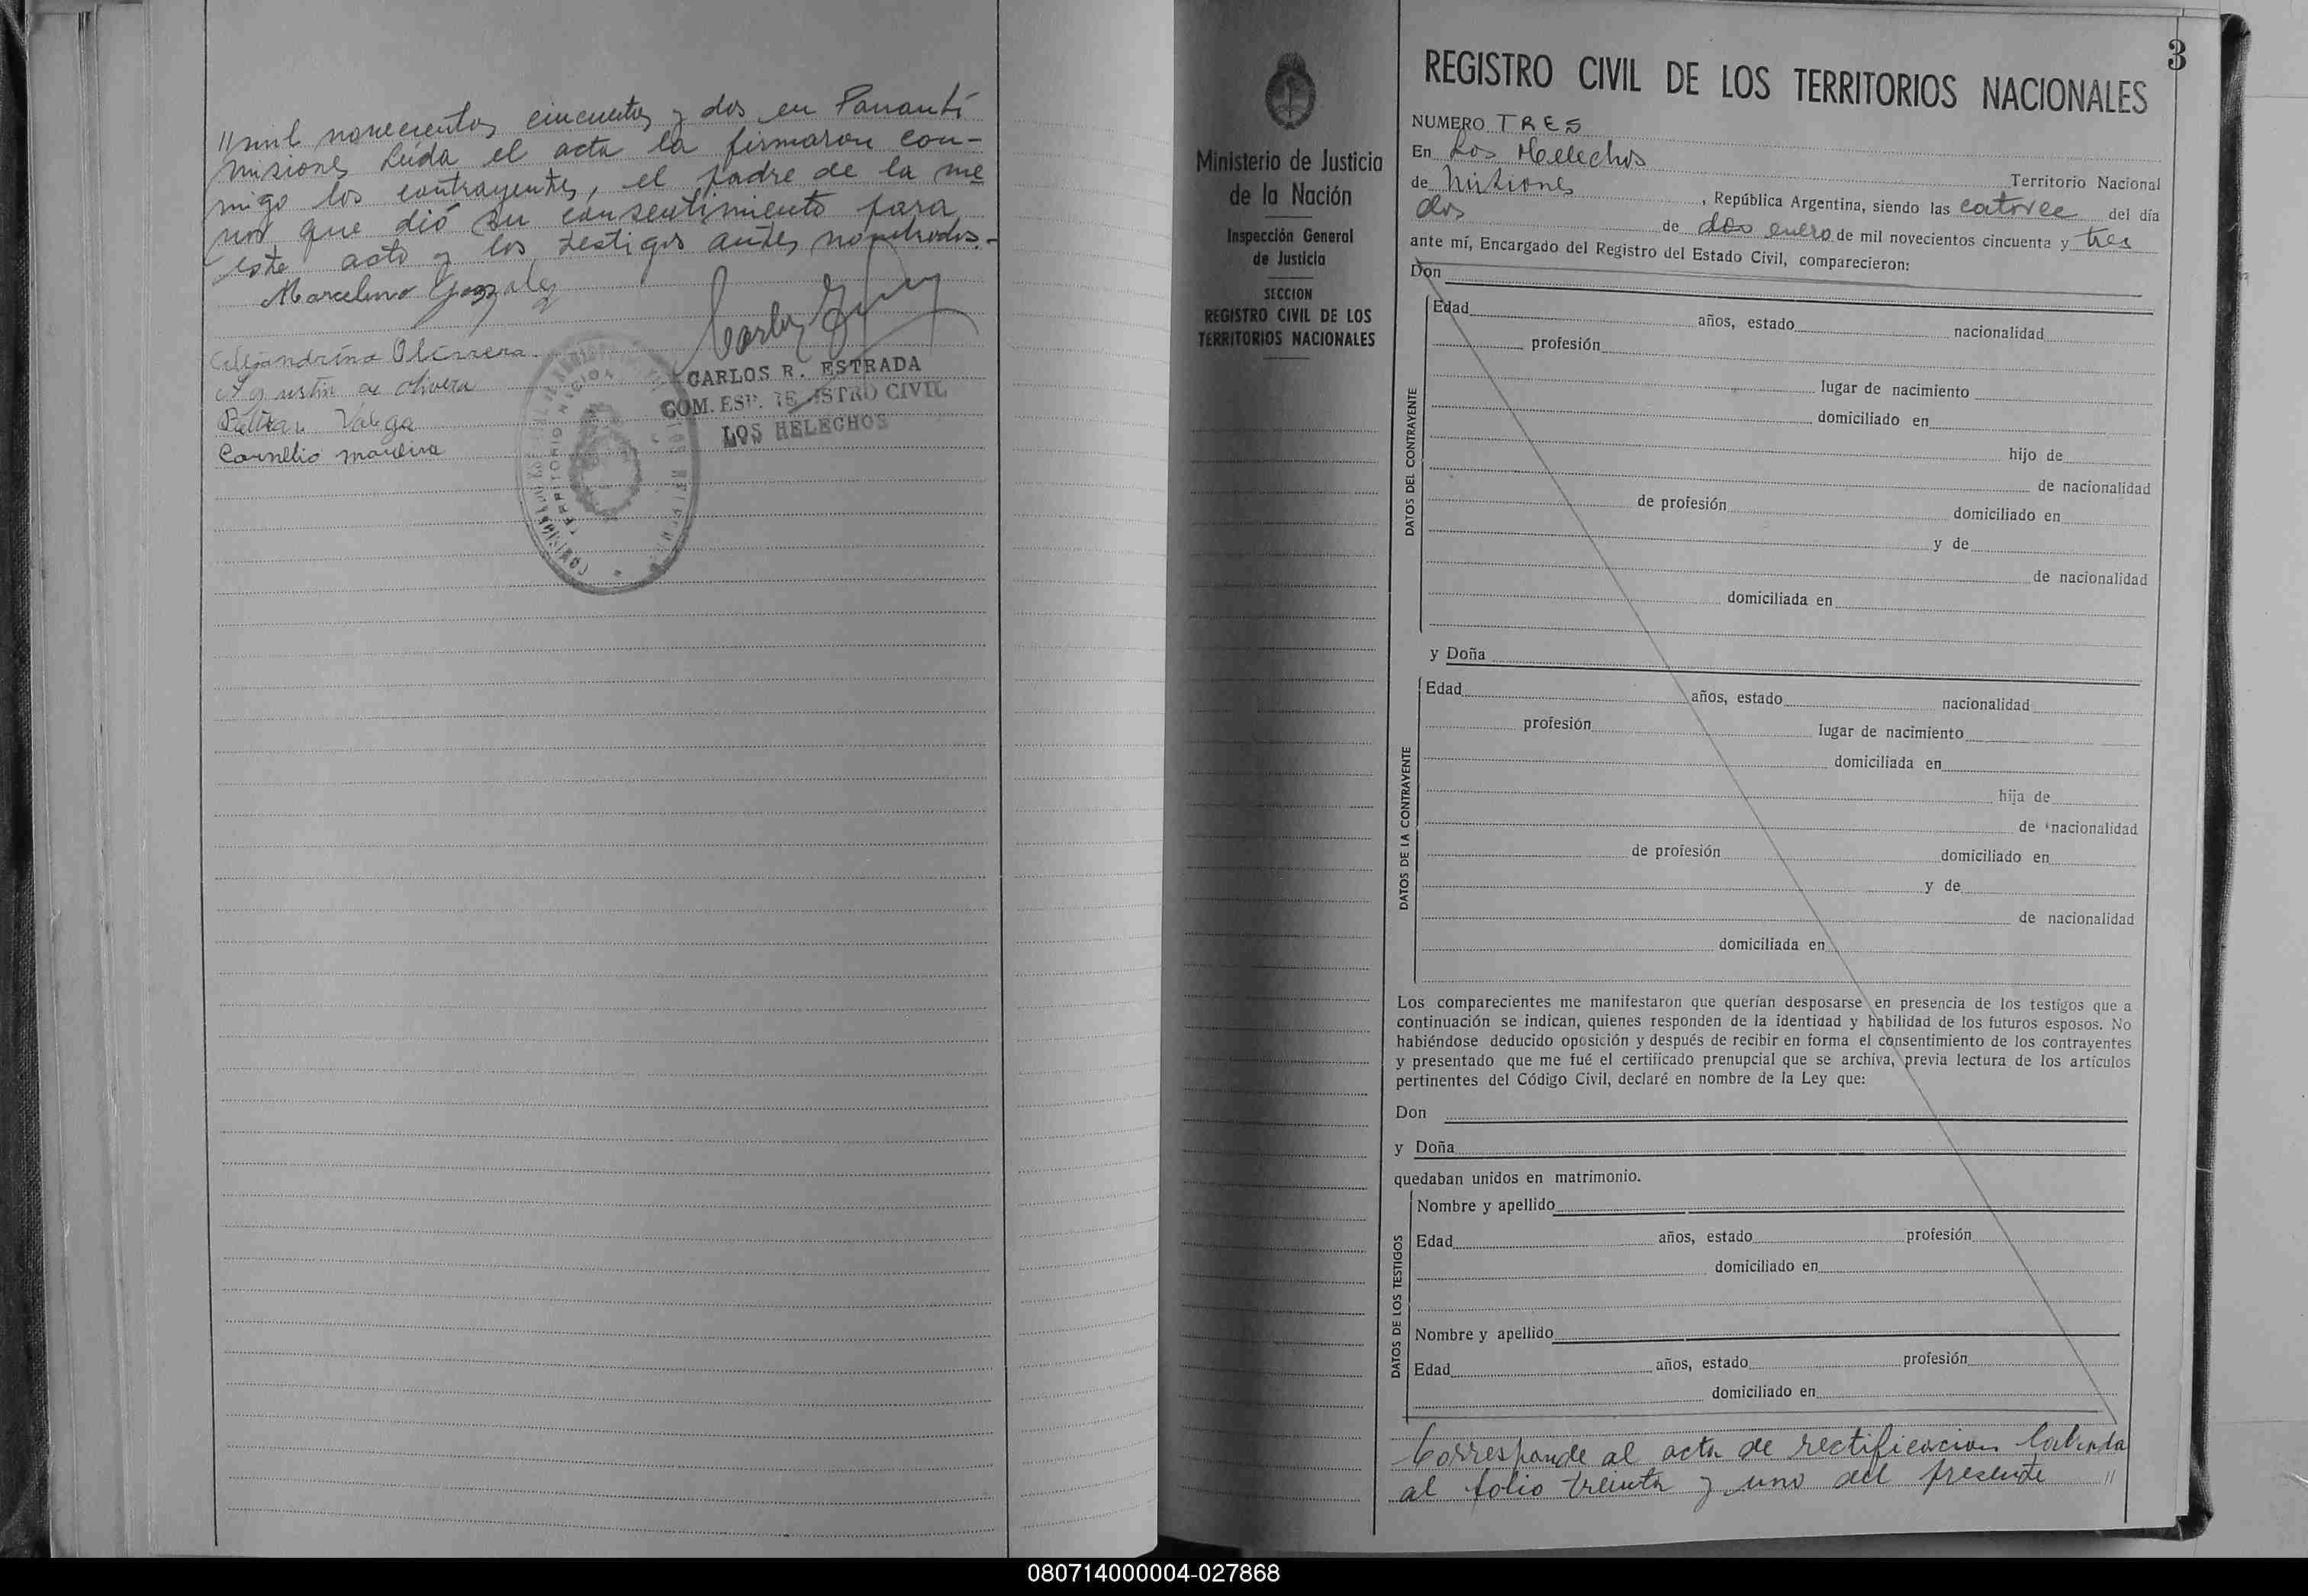 //mil novecientos cincuenta y dos en Panambí
misiones Leída el acta la firmaron con-
migo los contrayentes, el padre de la me
nor que dió su consentimiento para
este acto y los testigos antes nombrados.-
Marcelino Gonzalez
Alejandrina Olivera
Agustin de olivera
Varga
Cornelio moreira
CARLOS R. ESTRADA
COM. ESP. REGISTRO CIVIL
LOS HELECHOS
3
Ministerio de Justicia
de la Nación
Inspección General
de Justicia
SECCION
REGISTRO CIVIL DE LOS
TERRITORIOS NACIONALES
REGISTRO CIVIL DE LOS TERRITORIOS NACIONALES
NUMERO TRES
En Los Helechos Territorio Nacional
de Misiones, República Argentina, siendo las catorce del día
dos de dos enero de mil novecientos cincuenta y tres
ante mí, Encargado del Registro del Estado Civil, comparecieron:
Don
DATOS DEL CONTRAYENTE
Edad años, estado nacionalidad
profesión
lugar de nacimiento
domiciliado en
hijo de
de nacionalidad
de profesión domiciliado en
y de
de nacionalidad
domiciliada en
y Doña
DATOS DE LA CONTRAYENTE
Edad años, estado nacionalidad
profesión lugar de nacimiento
domiciliada en
hija de
de nacionalidad
de profesión domiciliado en
y de
de nacionalidad
domiciliada en
Los comparecientes me manifestaron que querían desposarse en presencia de los testigos que a
continuación se indican, quienes responden de la identidad y habilidad de los futuros esposos. No
habiéndose deducido oposición y después de recibir en forma el consentimiento de los contrayentes
y presentado que me fué el certificado prenupcial que se archiva, previa lectura de los artículos
pertinentes del Código Civil, declaré en nombre de la Ley que:
Don
y Doña
quedaban unidos en matrimonio.
DATOS DE LOS TESTIGOS
Nombre y apellido
Edad años, estado profesión
domiciliado en
Nombre y apellido
Edad años, estado profesión
domiciliado en
Corresponde al acta de rectificacion labrada
al folio treinta y uno del presente //
080714000004-027868